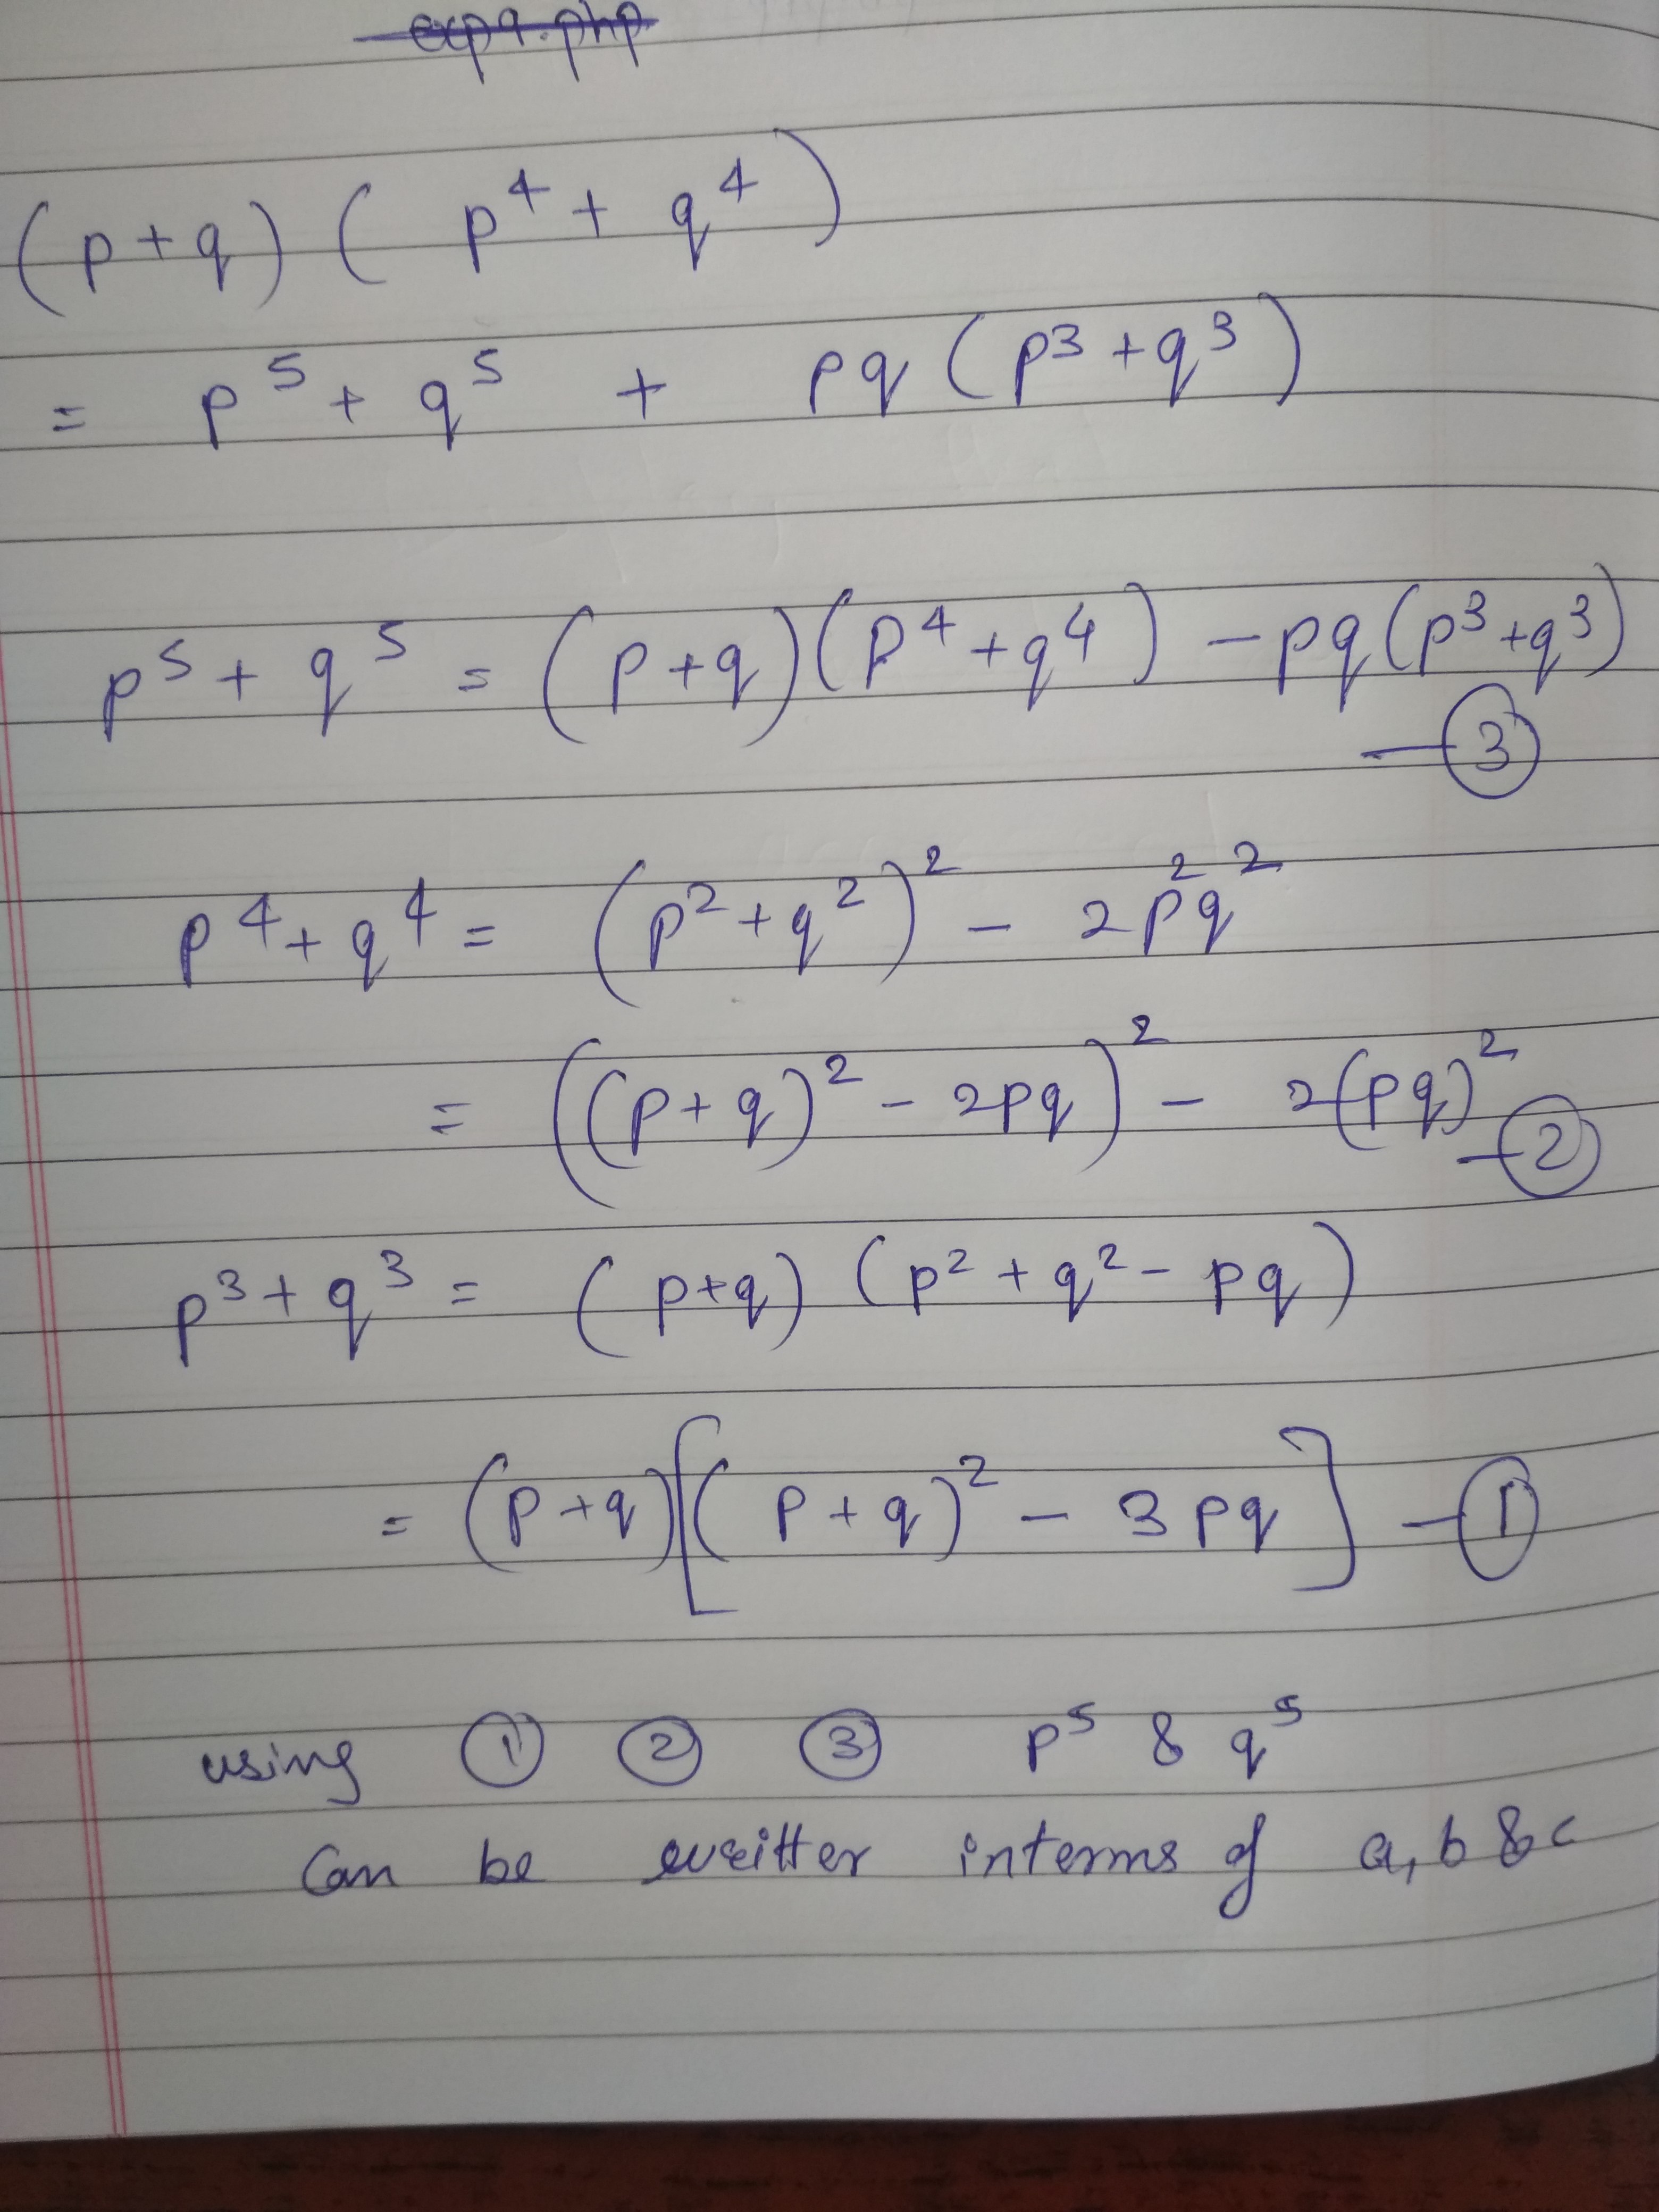 (p+q) ( p⁴ + q⁴ )
= p⁵ + q⁵ + pq ( p³ + q³ )
p⁵ + q⁵ = (p+q)(p⁴+q⁴) - pq(p³+q³)
—③
p⁴ + q⁴ = (p²+q²)² - 2p²q²
= ((p+q)² - 2pq)² - 2(pq)²
—②
p³ + q³ = (p+q) (p² + q² - pq)
= (p+q)[(p+q)² - 3pq] —①
using ① ② ③ p⁵ & q⁵
Can be writter interms of a, b & c